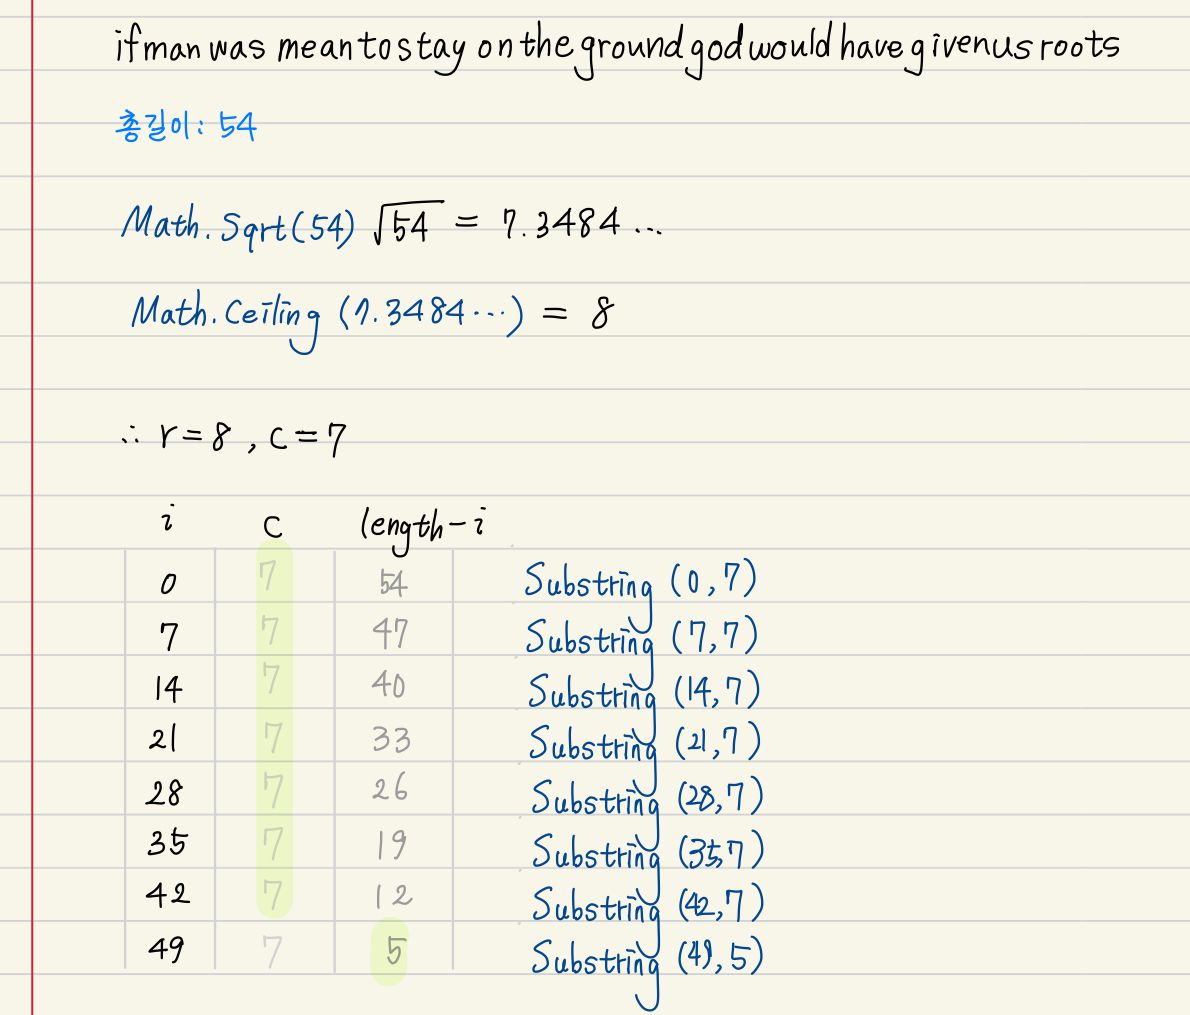 ifmanwasmeanttostayonthegroundgodwouldhavegivenusroots
총길이: 54
Math.Sqrt(54) √54 = 7.3484...
Math.Ceiling (7.3484...) = 8
∴ r=8, c=7
i c length-i
0 7 54 Substring (0,7)
7 7 47 Substring (7,7)
14 7 40 Substring (14,7)
21 7 33 Substring (21,7)
28 7 26 Substring (28,7)
35 7 19 Substring (35,7)
42 7 12 Substring (42,7)
49 7 5 Substring (49,5)